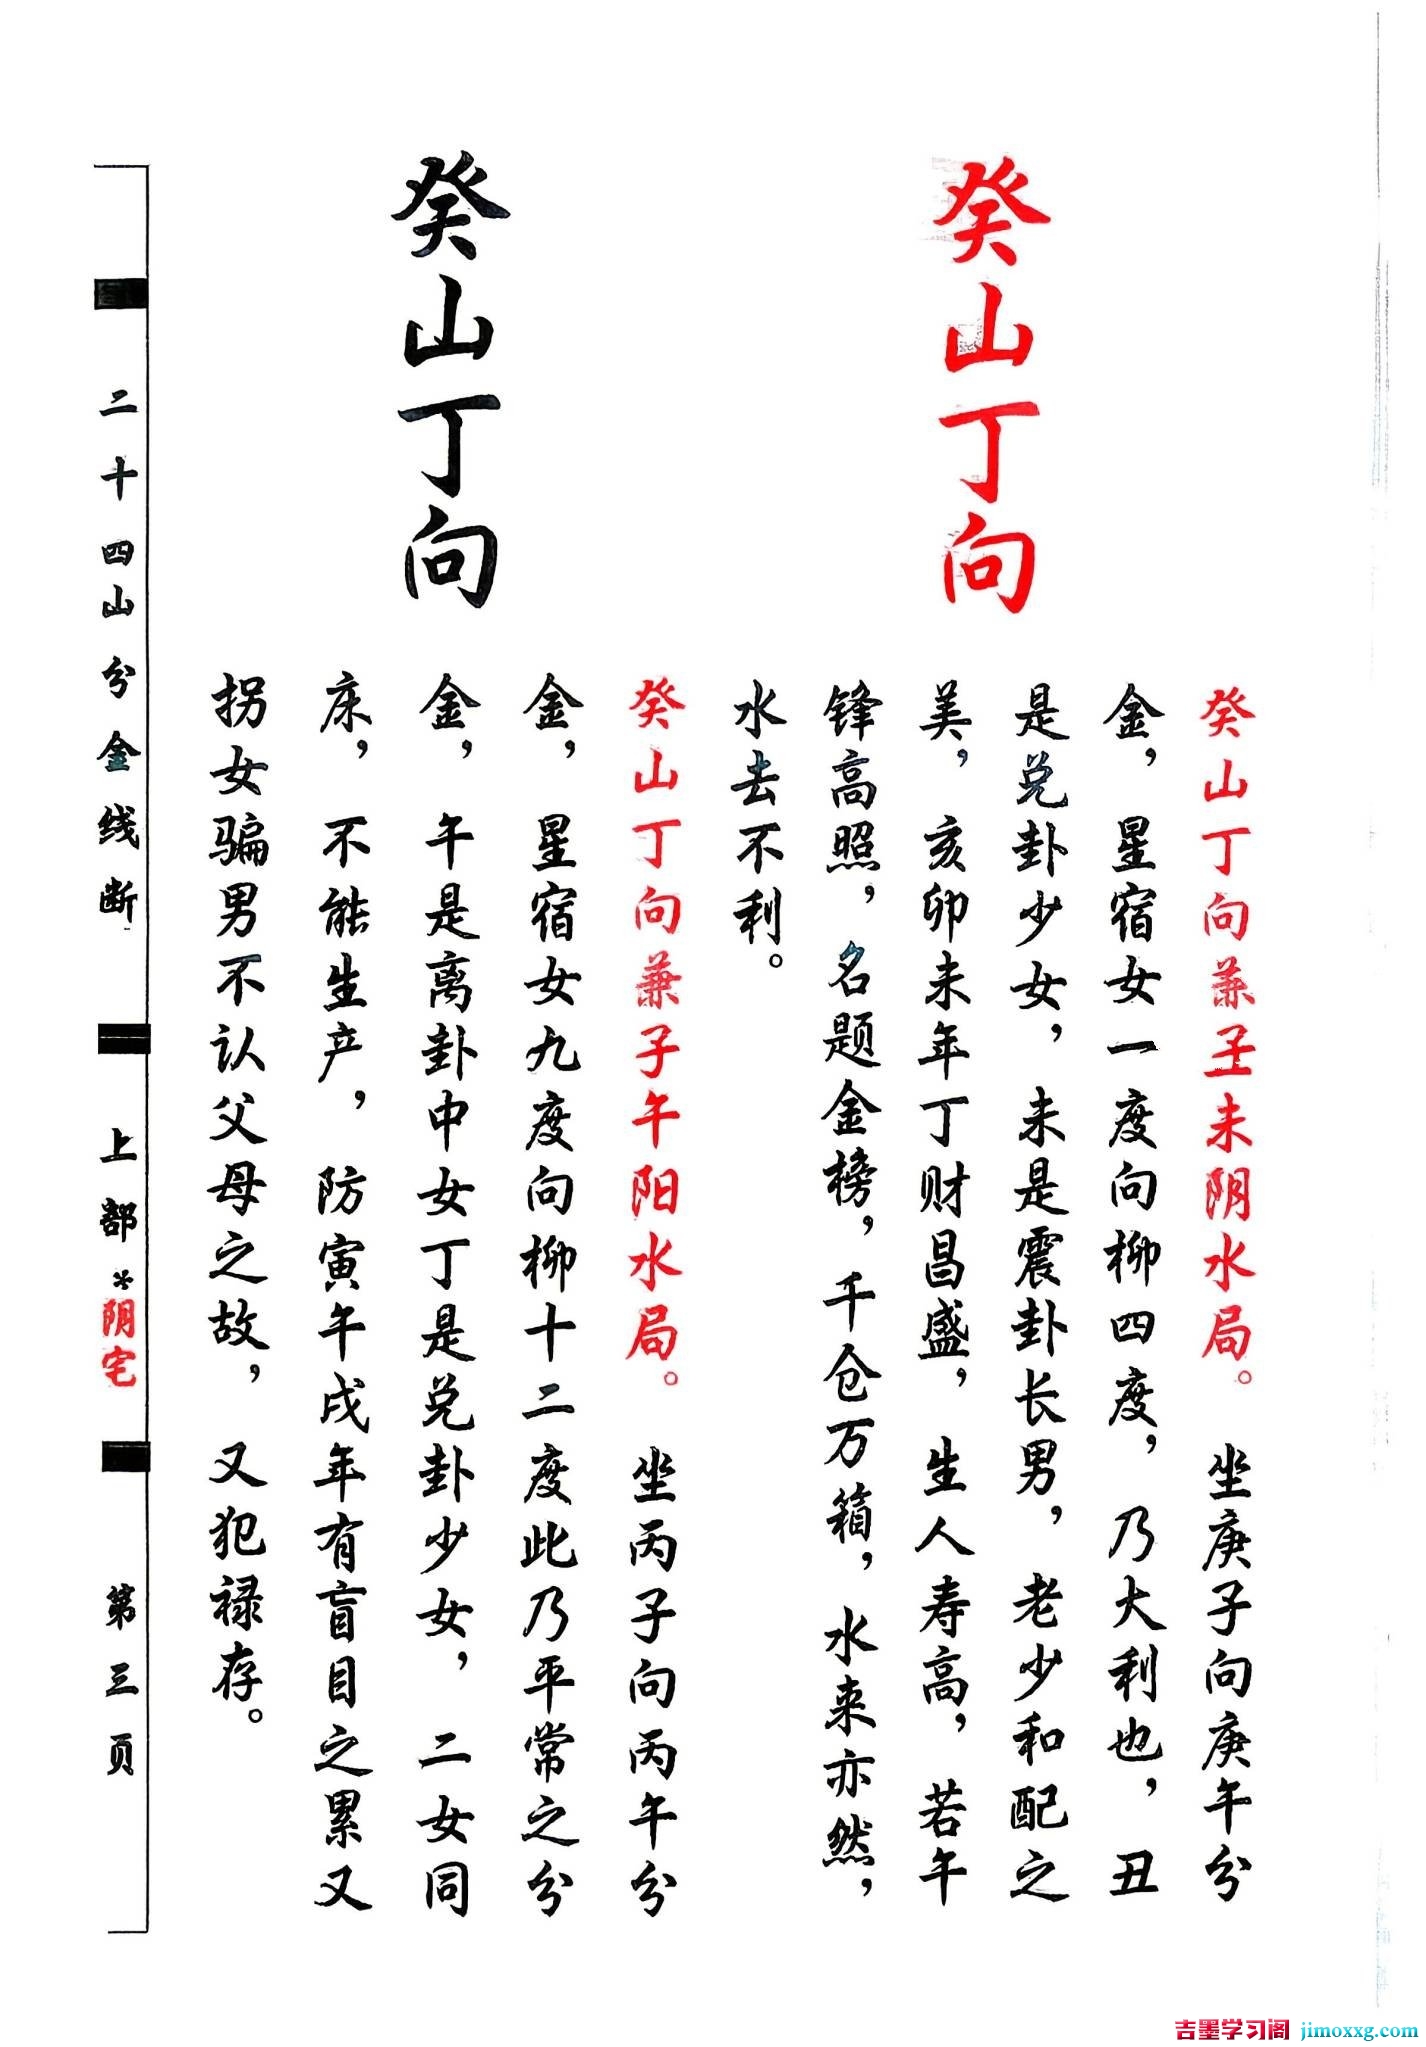 癸山丁向
癸山丁向兼丑未阴水局。坐庚子向庚午分
金，星宿女一度向柳四度，乃大利也，丑
是兑卦少女，未是震卦长男，老少和配之
美，亥卯未年丁财昌盛，生人寿高，若午
锋高照，名题金榜，千仓万箱，水来亦然，
水去不利。
癸山丁向
癸山丁向兼子午阳水局。坐丙子向丙午分
金，星宿女九度向柳十二度此乃平常之分
金，午是离卦中女丁是兑卦少女，二女同
床，不能生产，防寅午戌年有盲目之累又
拐女骗男不认父母之故，又犯禄存。
二十四山分金线断 上部*阴宅 第三页
吉墨学习阁 jimoxxg.com